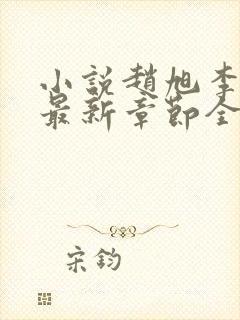 小說趙旭李
最新章節全
宋鈞